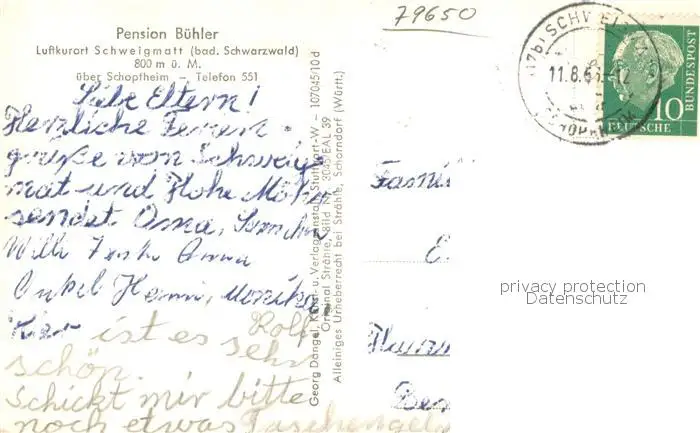 Pension Bühler
Luftkurort Schweigmatt (bad. Schwarzwald)
800 m ü. M.
über Schopfheim — Telefon 551
Liebe Eltern!
Herzliche Ferien-
grüße von Schweig
mat und Hohe Möhr
sendet Oma,
Willi Tante Anna
Onkel Henni, Monika,
Rolf
Hier ist es sehr
schön.
Schickt mir bitte
noch etwas Taschengeld
Georg Dangel, Kunst- u. Verlagsanstalt, Stuttgart-W — 107045/10 d
Original Strähle, Bild Nr. 3045/EAL 39
Alleiniges Urheberrecht bei Strähle, Schorndorf (Württ.)
79650
11.8.6
10
DEUTSCHE
BUNDESPOST
Famili
privacy protection
Datenschutz